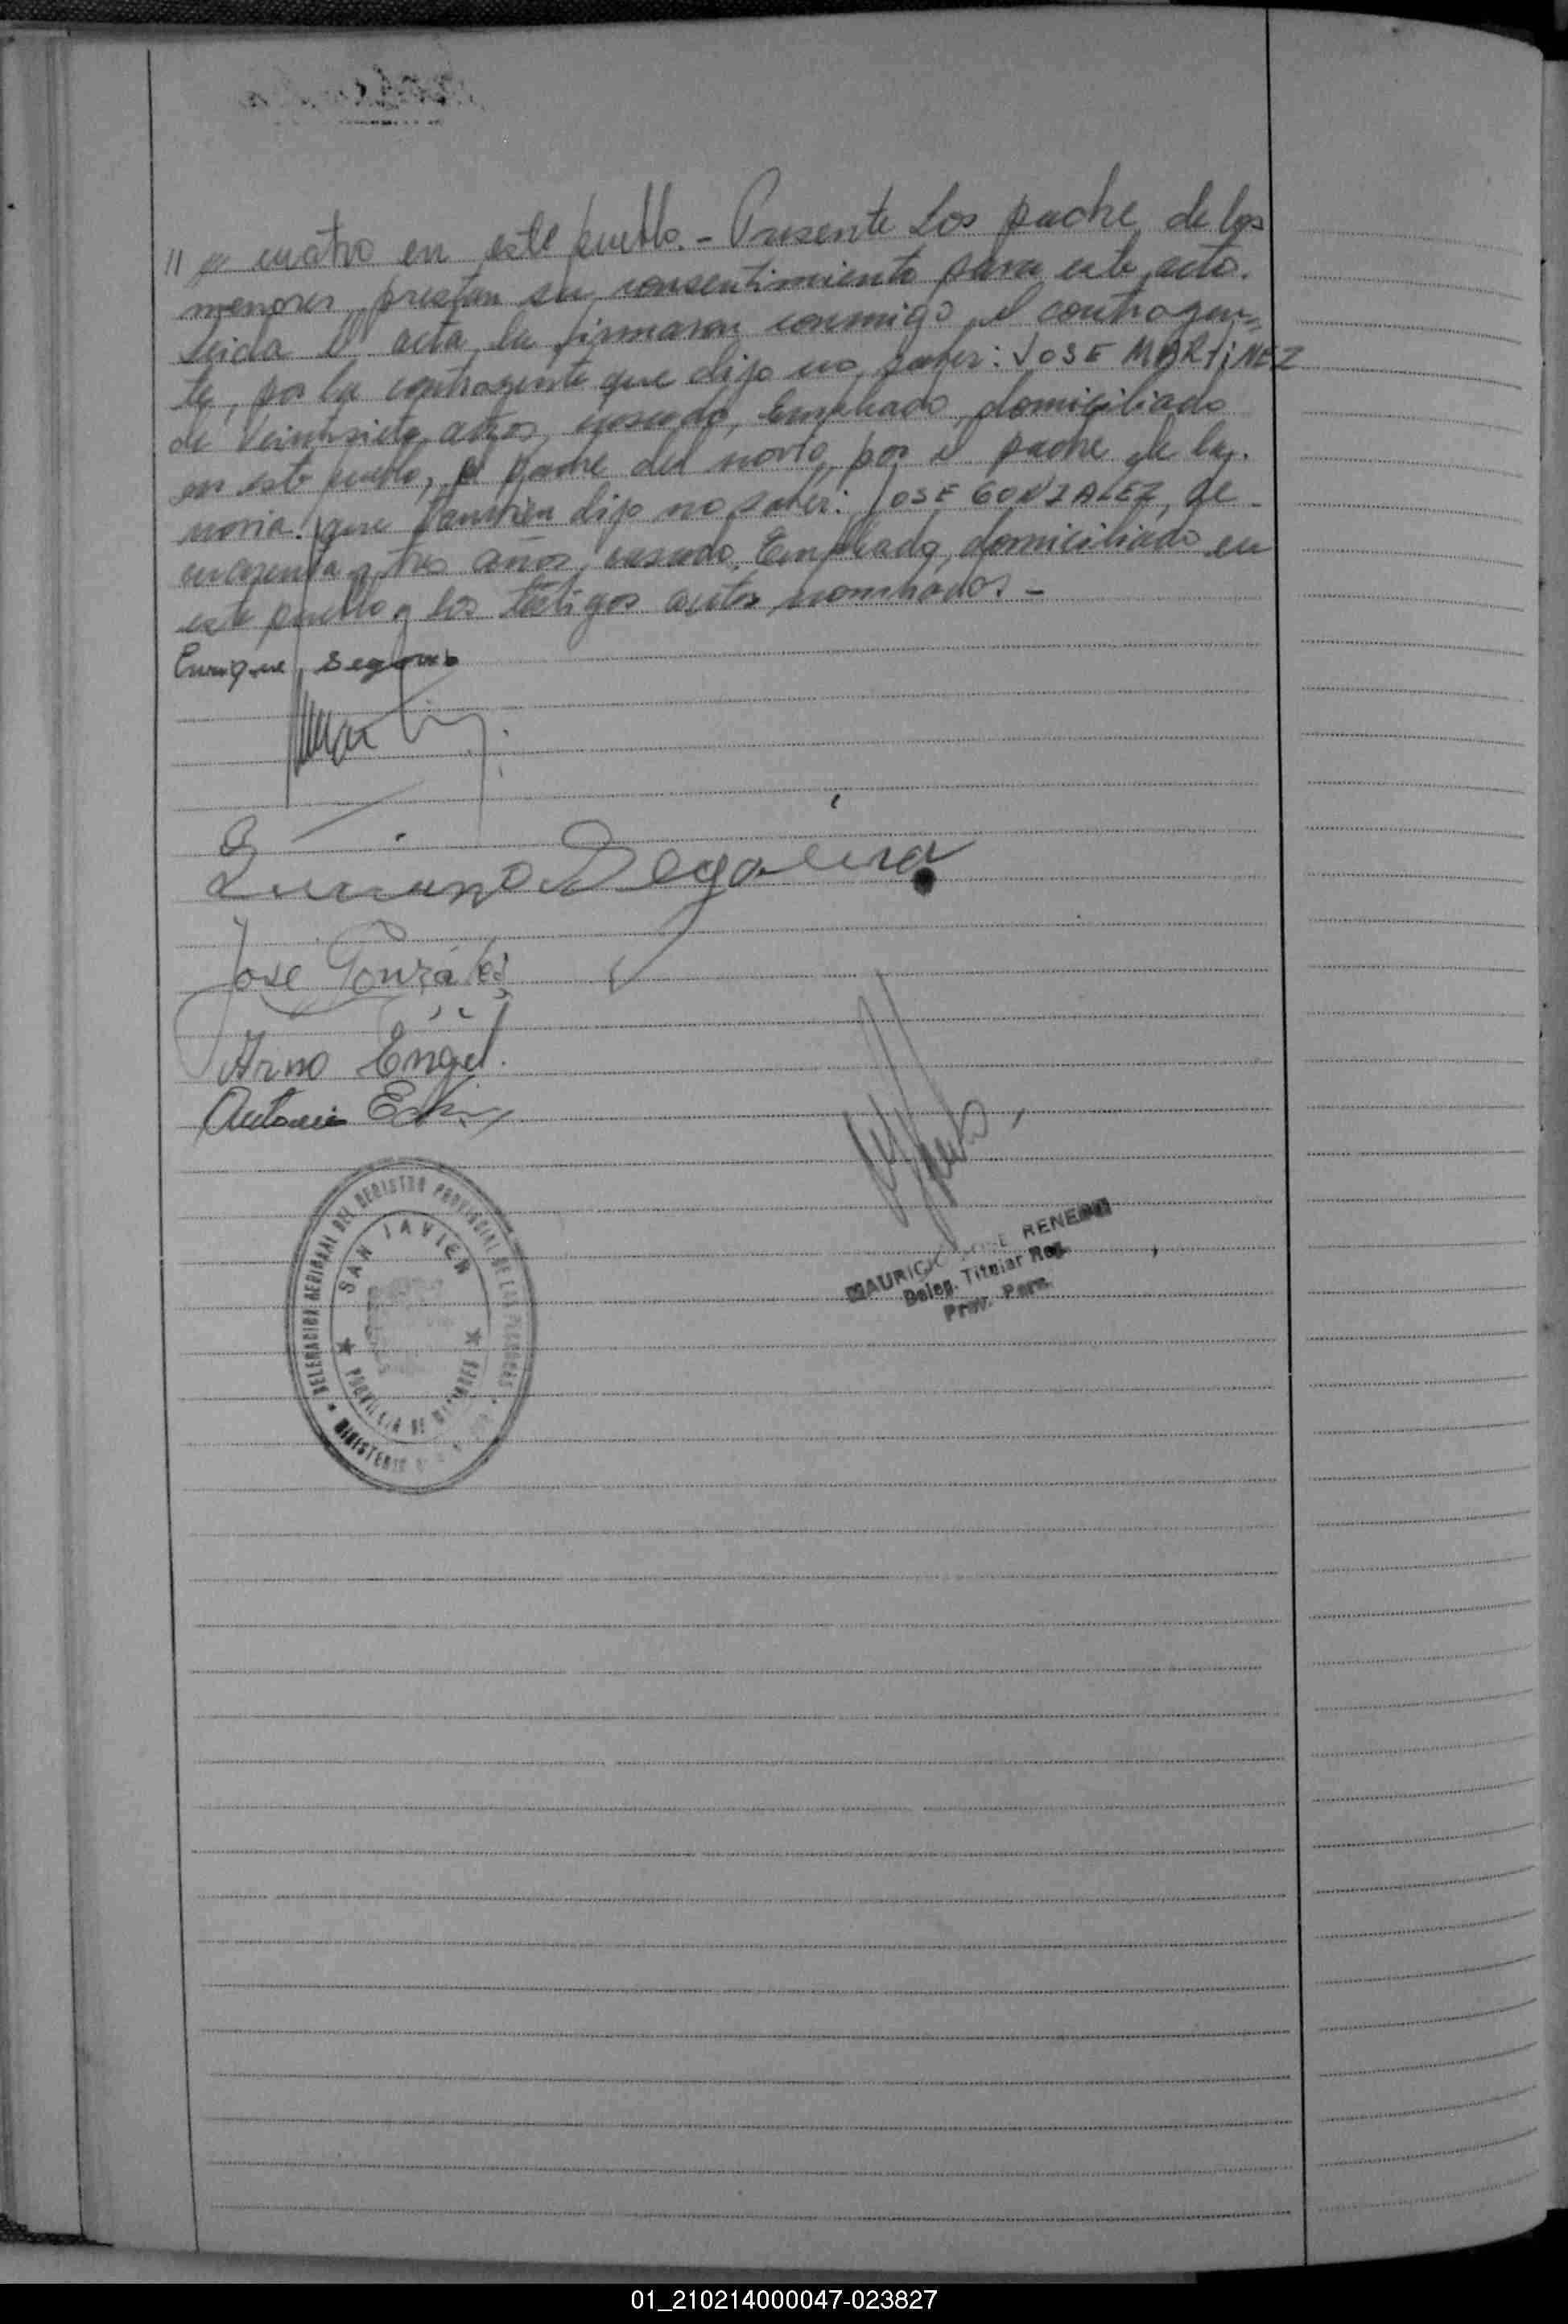 " y cuatro en este pueblo.- Presente los padre de los
menores prestan su consentimiento para este acto.
Leida el acta la firmaron conmigo el contrayen=
te, por la contrayente que dijo no saber: JOSE MARTINEZ
de veintisiete años, casado, Empleado, domiciliado
en este pueblo, el padre del novio, por el padre de la
novia que tambien dijo no saber: JOSE GONZALEZ, de
cuarenta y tres años, casado, Empleado, domiciliado en
este pueblo y los testigos antes nombrados -
Enrique Segovia
Luciano Segovia
Jose González
Arno Engel.
Antonio
DELEGACION SECCIONAL DEL REGISTRO PROVINCIAL DE LAS PERSONAS
SAN JAVIER
PROVINCIA DE MISIONES
MINISTERIO
MAURICIO RENE
Deleg. Titular Reg.
Prov. Pers.
01_210214000047-023827